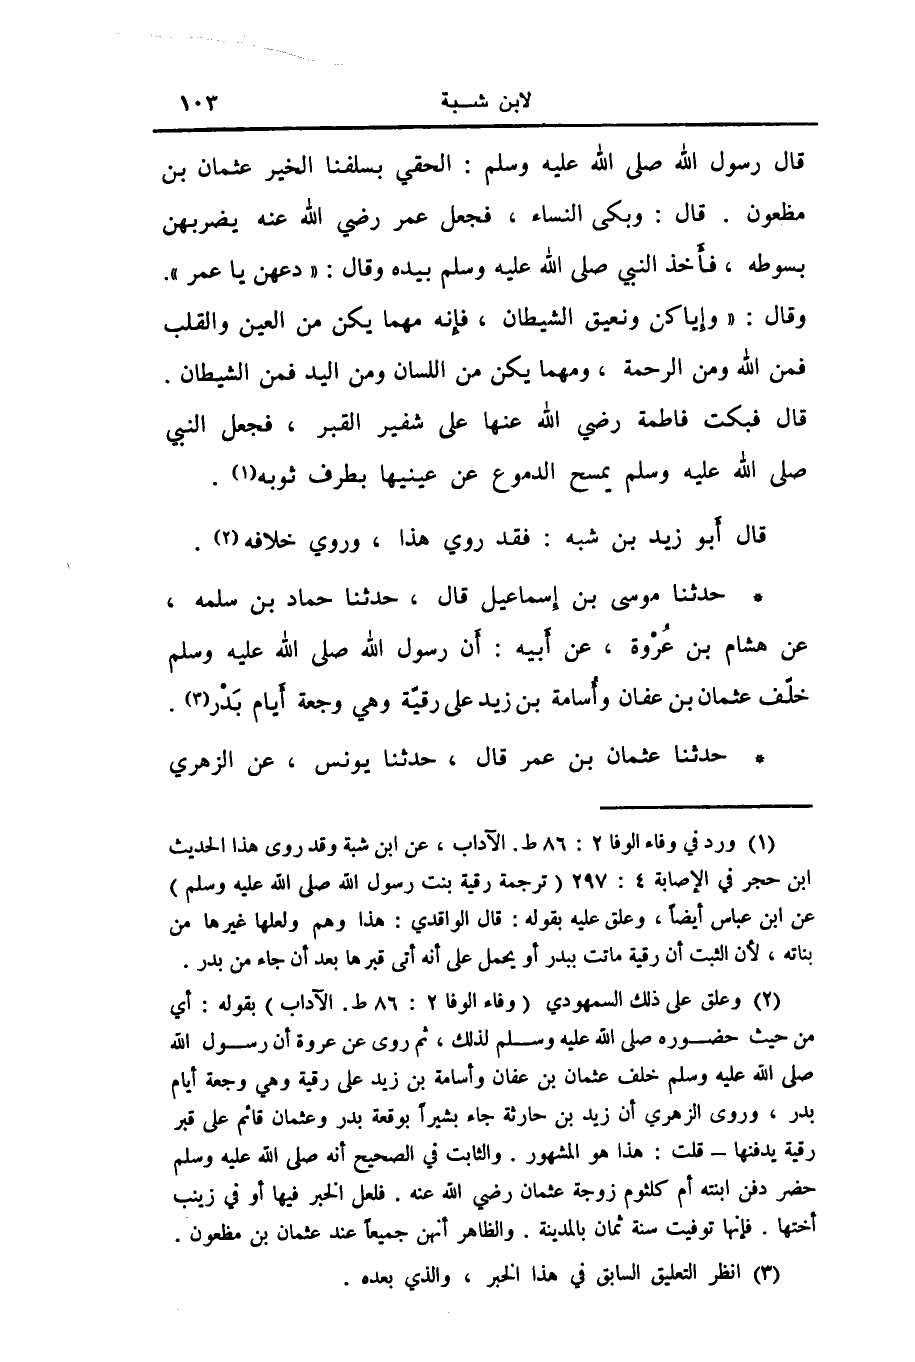 لابن شبة ١٠٣
قال رسول الله صلى الله عليه وسلم : الحقي بسلفنا الخير عثمان بن
مظعون . قال : وبكى النساء ، فجعل عمر رضي الله عنه يضربهن
بسوطه ، فأخذ النبي صلى الله عليه وسلم بيده وقال : « دعهن يا عمر ».
وقال : « وإياكن ونعيق الشيطان ، فإنه مهما يكن من العين والقلب
فمن الله ومن الرحمة ، ومهما يكن من اللسان ومن اليد فمن الشيطان .
قال فبكت فاطمة رضي الله عنها على شفير القبر ، فجعل النبي
صلى الله عليه وسلم يمسح الدموع عن عينيها بطرف ثوبه(١) .
قال أبو زيد بن شبه : فقد روي هذا ، وروي خلافه(٢) .
* حدثنا موسى بن إسماعيل قال ، حدثنا حماد بن سلمه ،
عن هشام بن عُرْوة ، عن أبيه : أن رسول الله صلى الله عليه وسلم
خلّف عثمان بن عفان وأُسامة بن زيد على رقيّة وهي وجعة أيام بَدْر(٣) .
* حدثنا عثمان بن عمر قال ، حدثنا يونس ، عن الزهري
(١) ورد في وفاء الوفا ٢ : ٨٦ ط. الآداب ، عن ابن شبة وقد روى هذا الحديث
ابن حجر في الإصابة ٤ : ٢٩٧ ( ترجمة رقية بنت رسول الله صلى الله عليه وسلم )
عن ابن عباس أيضاً ، وعلق عليه بقوله : قال الواقدي : هذا وهم ولعلها غيرها من
بناته ، لأن الثبت أن رقية ماتت ببدر أو يحمل على أنه أتى قبرها بعد أن جاء من بدر .
(٢) وعلق على ذلك السمهودي ( وفاء الوفا ٢ : ٨٦ ط. الآداب ) بقوله : أي
من حيث حضوره صلى الله عليه وسلم لذلك ، ثم روى عن عروة أن رسول الله
صلى الله عليه وسلم خلف عثمان بن عفان وأسامة بن زيد على رقية وهي وجعة أيام
بدر ، وروى الزهري أن زيد بن حارثة جاء بشيراً بوقعة بدر وعثمان قائم على قبر
رقية يدفنها – قلت : هذا هو المشهور . والثابت في الصحيح أنه صلى الله عليه وسلم
حضر دفن ابنته أم كلثوم زوجة عثمان رضي الله عنه . فلعل الخبر فيها أو في زينب
أختها . فإنها توفيت سنة ثمان بالمدينة . والظاهر أنهن جميعاً عند عثمان بن مظعون .
(٣) انظر التعليق السابق في هذا الخبر ، والذي بعده .